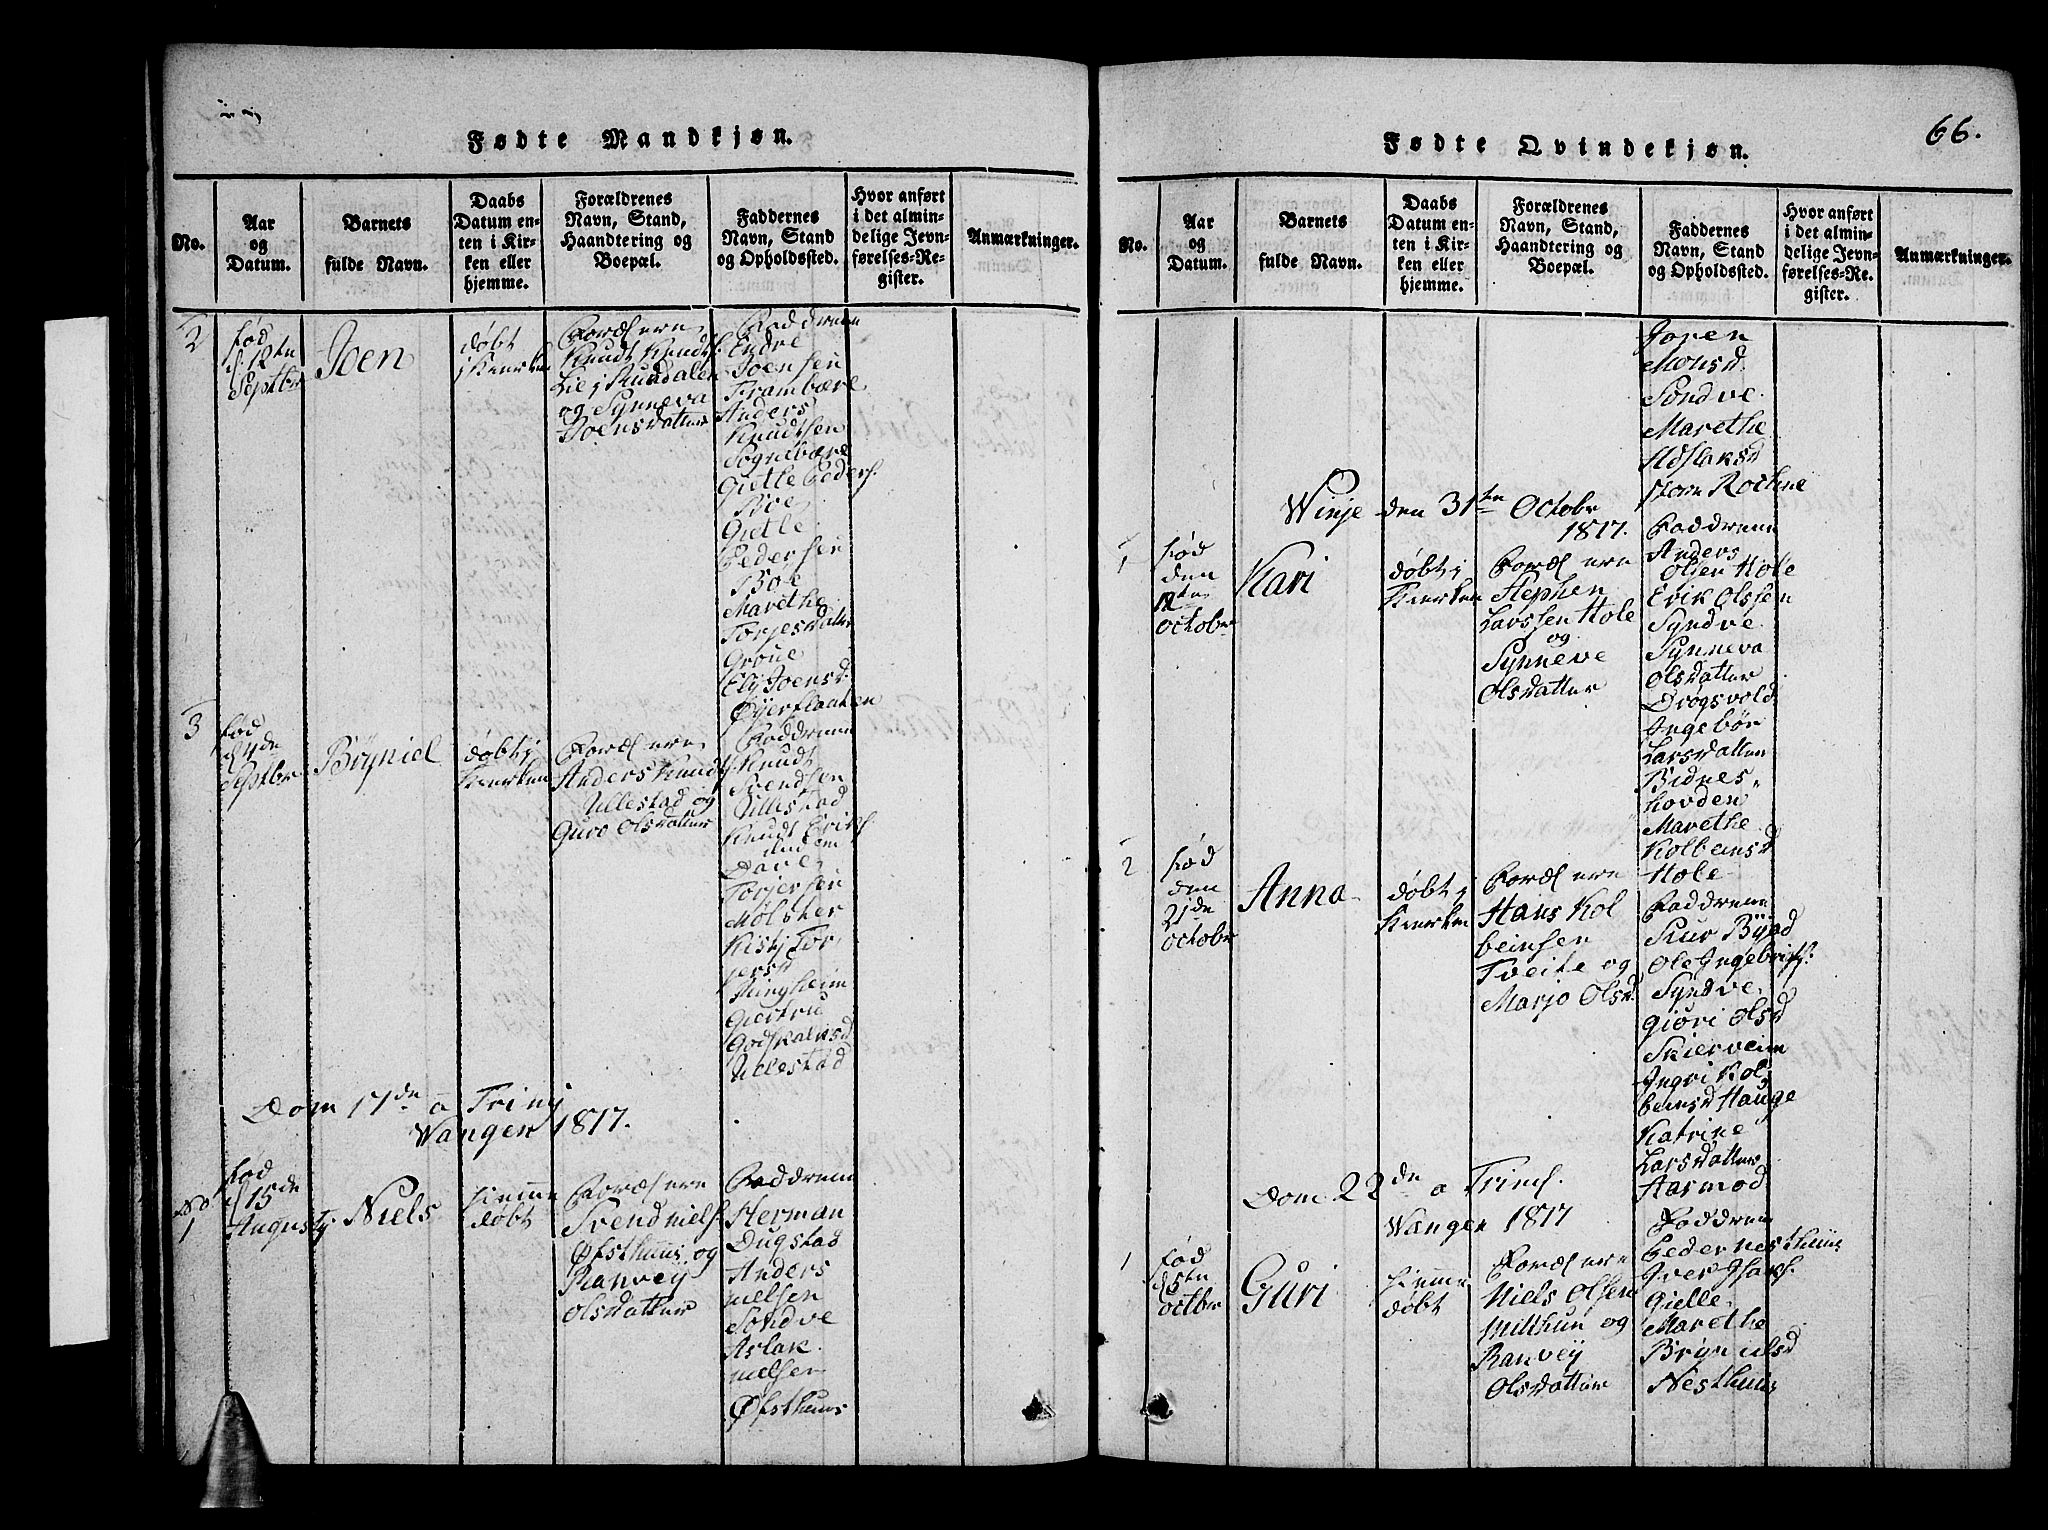 Fødte Mandkjøn.
No.
Aar
og
Datum.
Barnets
fulde Navn.
Daabs
Datum en-
ten i Kir-
ken eller
hjemme.
Forældrenes
Navn, Stand,
Haandtering og
Boepæl.
Faddernes
Navn, Stand
og Opholdssted.
Hvor anført
i det almin-
delige Jevn-
førelses-Re-
gister.
Anmærkninger.
2
fød
d. 12tn
Septbr
Joen
døbt
i Kierken
Foræl ere
Knudt Knudts.
Lie i Rundalen
og Synneva
Joensdatter
Faddrene
Endre
Joensen
Frambære
Anders
Knudtsen
Sognebære
Gietle Peders.
Boe
Gietle
Pedersen
Boe
Marethe
Torjesdatter
Groue
Elj Joensd.
Øyerflaaten
3
fød
d 4de
Septbr
Brÿniel
døbt i
Kierken
Foræl ere
Anders Knudts
Ullestad og
Guro Olsdatter
Faddrene
Knudt
Svendsen
Ullestad
Knudt Eriks.
Dave
Torjersen
Mølster
Kistj Tor-
jersd
Ringheim
Giertru
Godskalksd
Ullestad
Dom 17de a Trinj
Wangen 1817.
No
1
fød
d 15de
Augustj
Niels
hiemme
døbt
Foræl ere
Svend niels.
Øfsthuus og
Ranveÿ
Olsdatter
Faddrene
Herman
Dugstad
Anders
nielsen
Sondve
Aslak
nielsen
Øfsthuus
66.
Fødte Qvindekjøn.
No.
Aar
og
Datum.
Barnets
fulde Navn.
Daabs
Datum en-
ten i Kir-
ken eller
hjemme.
Forældrenes
Navn, Stand,
Haandtering og
Boepæl.
Faddernes
Navn, Stand
og Opholdssted.
Hvor anført
i det almin-
delige Jevn-
førelses-Re-
gister.
Anmærkninger.
Joren
Monsd
Sondve
Marethe
Udslaksd
store Rochne
Winje den 31tn Octobr
1817.
1
fød
den
12tn
Octobr
Kari
døbt i
Kierken
Foræl ere
Stephen
Larssen Hole
og
Sÿnneve
Olsdatter
Faddrene
Anders
Olsen Hole
Erik Olssen
Sÿndve
Sÿnneva
Olsdatter
Drøgsvold
Ingebør
Larsdatter
Bidnes-
hovden
Marethe
Kolbeinsd
Hole
2
fød
den
21de
Octobr
Anna
døbt i
Kierken
Foræl ere
Hans Kol
beinsen
Tveite og
Marjo Olsd.
Faddrene
Siur Bÿrd
Ole Ingebrits.
Sÿndve
Giøri Olsd
Skierveim
Ingri Kol-
beinsd Hauge
Katrine
Larsdatter
Aarmod
Dom 22de a Trinit.
Wangen 1817
1
fød
d 5tn
Octbr
Guri
hiemme
døbt
Foræl ere
Niels Olsen
Miltzun og
Ranveÿ
Olsdatter
Faddrene
Peder Nesthuus
Iver Isaks.
Gielle
Marethe
Brÿnielsd
Nesthuus